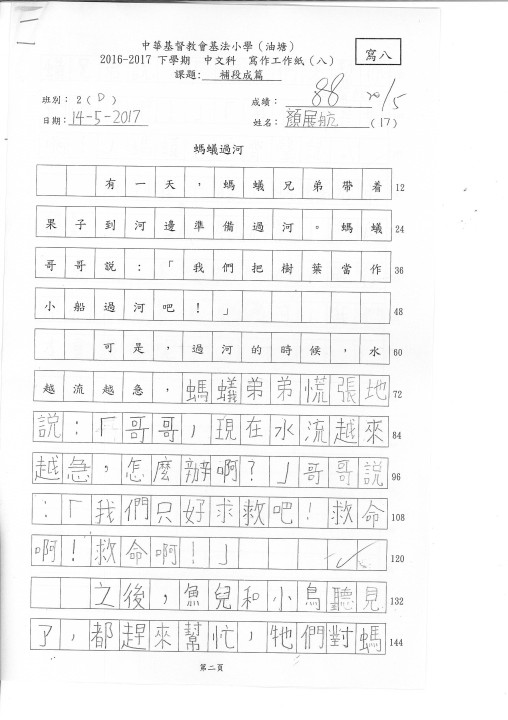 中華基督教會基法小學（油塘）
2016-2017 下學期 中文科 寫作工作紙（八）
寫八
課題: 補段成篇
班別：2（D）
成績：88 20/5
日期: 14-5-2017
姓名：顏展航（17）
螞蟻過河
有一天，螞蟻兄弟帶着 12
果子到河邊準備過河。螞蟻 24
哥哥說：「我們把樹葉當作 36
小船過河吧！」 48
可是，過河的時候，水 60
越流越急，螞蟻弟弟慌張地 72
說：「哥哥，現在水流越來 84
越急，怎麼辦啊？」哥哥說 96
：「我們只好求救吧！救命 108
啊！救命啊！」 120
之後，魚兒和小鳥聽見 132
了，都趕來幫忙，牠們對螞 144
第二頁